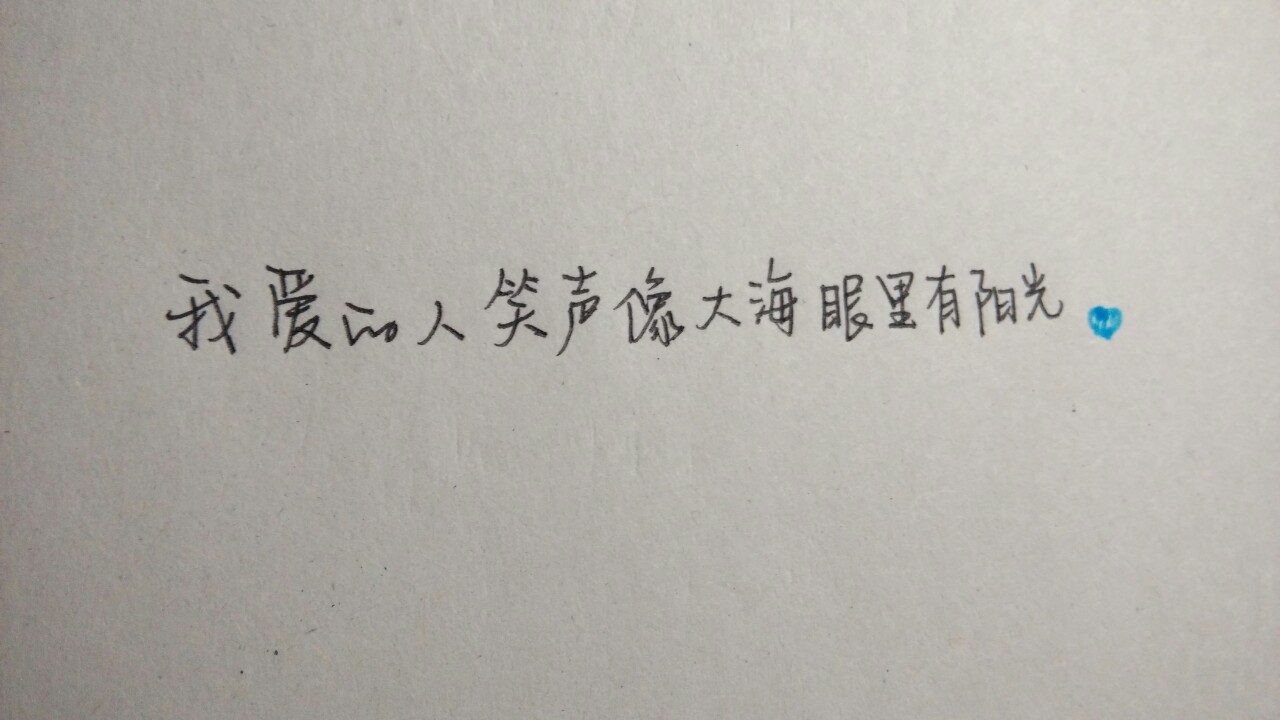 我爱的人笑声像大海眼里有阳光